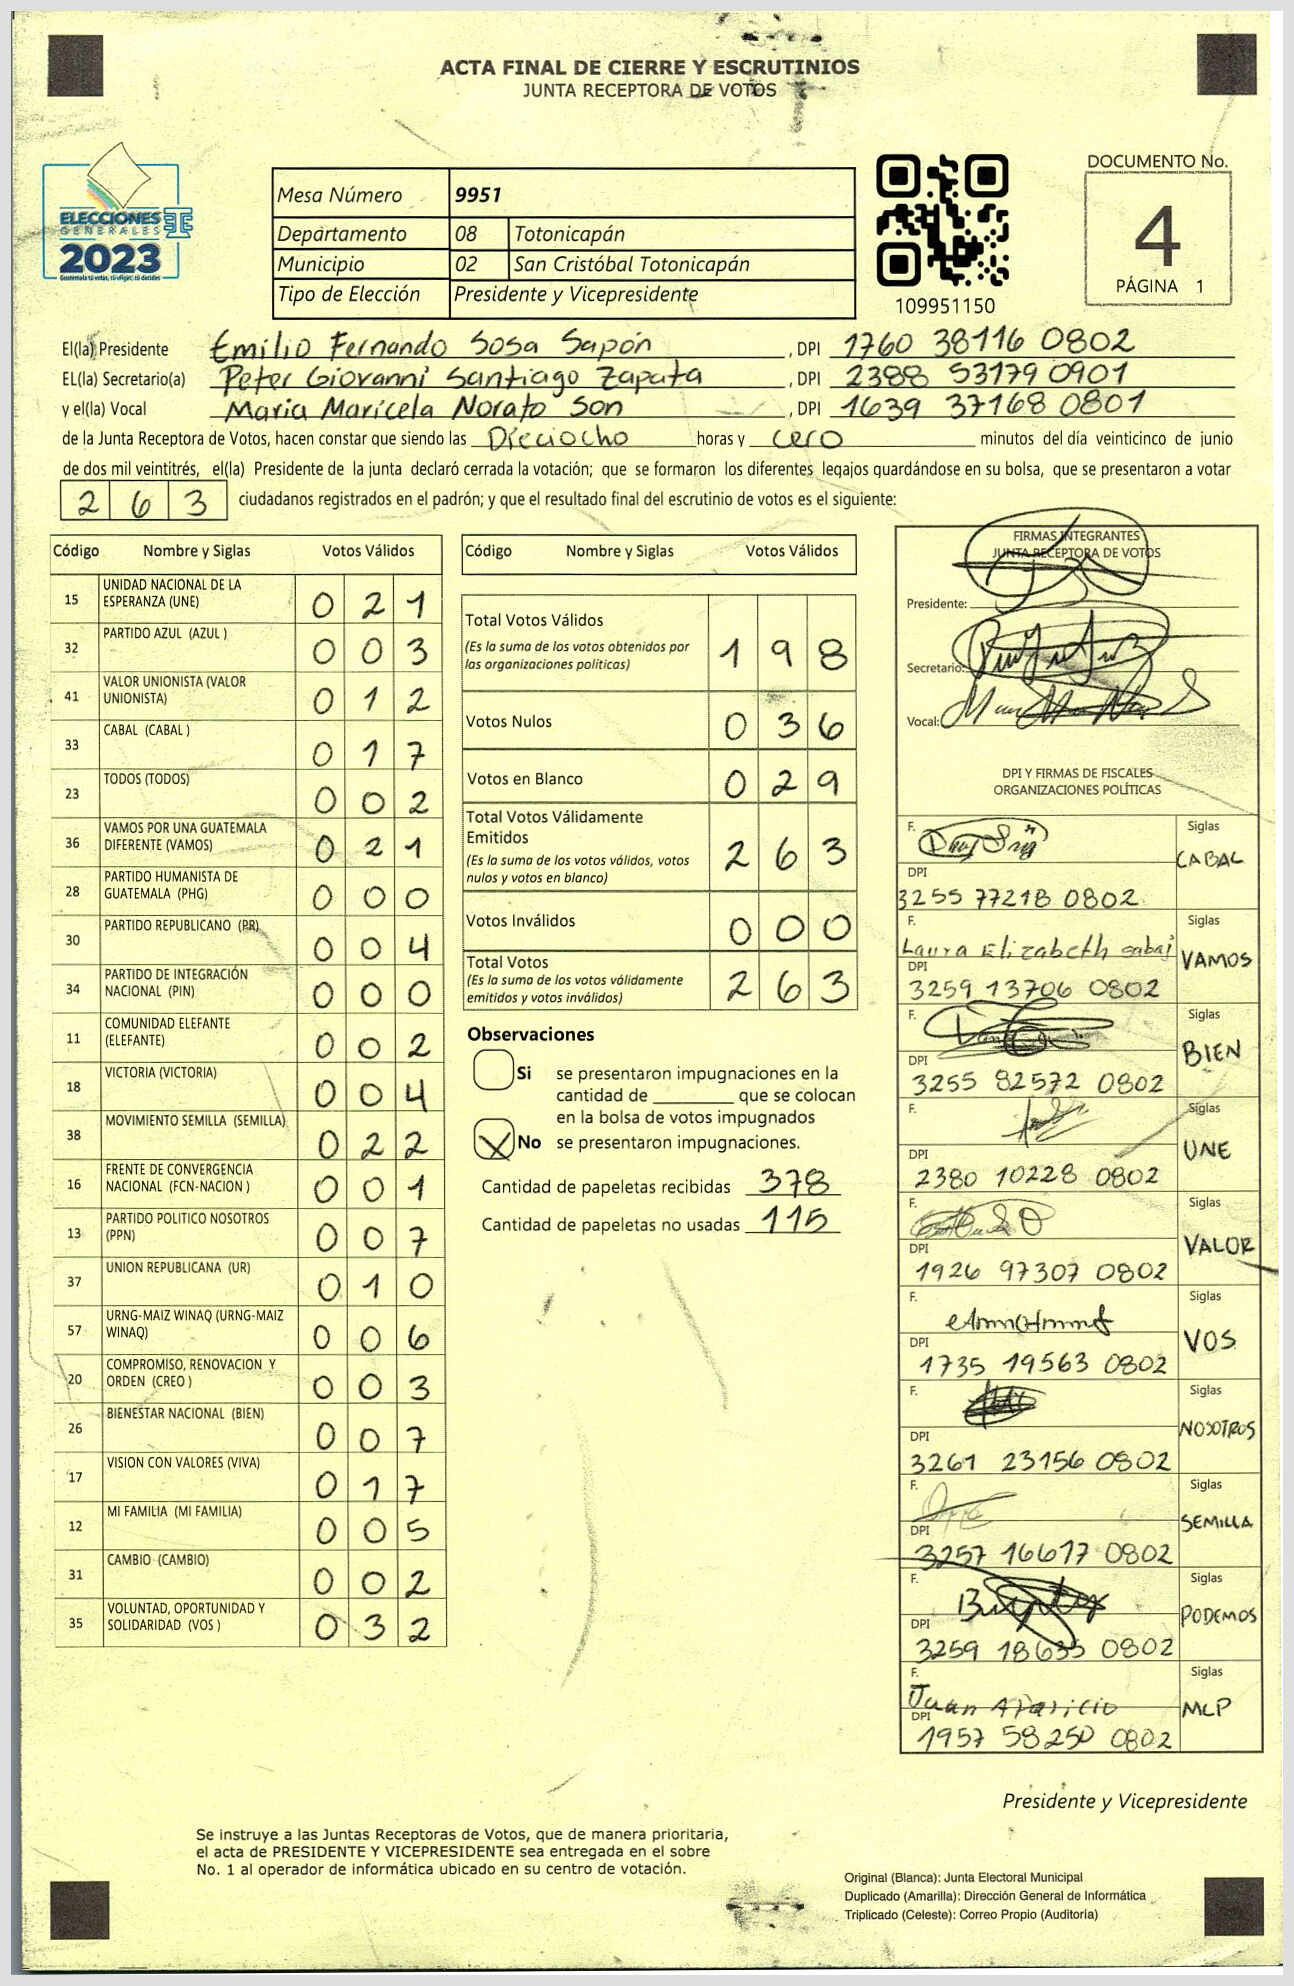 ACTA FINAL DE CIERRE Y ESCRUTINIOS
JUNTA RECEPTORA DE VOTOS
ELECCIONES
GENERALES
2023
Guatemala tú votas, tú eliges, tú decides
Mesa Número 9951
Departamento 08 Totonicapán
Municipio 02 San Cristóbal Totonicapán
Tipo de Elección Presidente y Vicepresidente
109951150
DOCUMENTO No.
4
PÁGINA 1
El(la) Presidente Emilio Fernando Sosa Sapón , DPI 1760 38116 0802
EL(la) Secretario(a) Peter Giovanni Santiago Zapata , DPI 2388 53179 0901
y el(la) Vocal Maria Maricela Norato Son , DPI 1639 37168 0801
de la Junta Receptora de Votos, hacen constar que siendo las Dieciocho horas y cero minutos del día veinticinco de junio
de dos mil veintitrés, el(la) Presidente de la junta declaró cerrada la votación; que se formaron los diferentes legajos guardándose en su bolsa, que se presentaron a votar
263 ciudadanos registrados en el padrón; y que el resultado final del escrutinio de votos es el siguiente:
Código Nombre y Siglas Votos Válidos
15 UNIDAD NACIONAL DE LA ESPERANZA (UNE) 021
32 PARTIDO AZUL (AZUL ) 003
41 VALOR UNIONISTA (VALOR UNIONISTA) 012
33 CABAL (CABAL ) 017
23 TODOS (TODOS) 002
36 VAMOS POR UNA GUATEMALA DIFERENTE (VAMOS) 021
28 PARTIDO HUMANISTA DE GUATEMALA (PHG) 000
30 PARTIDO REPUBLICANO (PR) 004
34 PARTIDO DE INTEGRACIÓN NACIONAL (PIN) 000
11 COMUNIDAD ELEFANTE (ELEFANTE) 002
18 VICTORIA (VICTORIA) 004
38 MOVIMIENTO SEMILLA (SEMILLA) 022
16 FRENTE DE CONVERGENCIA NACIONAL (FCN-NACION ) 001
13 PARTIDO POLITICO NOSOTROS (PPN) 007
37 UNION REPUBLICANA (UR) 010
57 URNG-MAIZ WINAQ (URNG-MAIZ WINAQ) 006
20 COMPROMISO, RENOVACION Y ORDEN (CREO ) 003
26 BIENESTAR NACIONAL (BIEN) 007
17 VISION CON VALORES (VIVA) 017
12 MI FAMILIA (MI FAMILIA) 005
31 CAMBIO (CAMBIO) 002
35 VOLUNTAD, OPORTUNIDAD Y SOLIDARIDAD (VOS ) 032
Código Nombre y Siglas Votos Válidos
Total Votos Válidos
(Es la suma de los votos obtenidos por las organizaciones políticas) 198
Votos Nulos 036
Votos en Blanco 029
Total Votos Válidamente Emitidos
(Es la suma de los votos válidos, votos nulos y votos en blanco) 263
Votos Inválidos 000
Total Votos
(Es la suma de los votos válidamente emitidos y votos inválidos) 263
Observaciones
Si se presentaron impugnaciones en la
cantidad de ________ que se colocan
en la bolsa de votos impugnados
X No se presentaron impugnaciones.
Cantidad de papeletas recibidas 378
Cantidad de papeletas no usadas 115
FIRMAS INTEGRANTES
JUNTA RECEPTORA DE VOTOS
Presidente:
Secretario:
Vocal:
DPI Y FIRMAS DE FISCALES
ORGANIZACIONES POLÍTICAS
F. Siglas CABAL
DPI 3255 77218 0802
F. Laura Elizabeth Sabaj Siglas VAMOS
DPI 3259 13706 0802
F. Siglas BIEN
DPI 3255 82572 0802
F. Siglas UNE
DPI 2380 10228 0802
F. Siglas VALOR
DPI 1926 97307 0802
F. Siglas VOS
DPI 1735 19563 0802
F. Siglas NOSOTROS
DPI 3261 23156 0802
F. Siglas SEMILLA
DPI 3257 16617 0802
F. Siglas PODEMOS
DPI 3259 18635 0802
F. Juan Aparicio Siglas MLP
DPI 1957 58250 0802
Presidente y Vicepresidente
Se instruye a las Juntas Receptoras de Votos, que de manera prioritaria,
el acta de PRESIDENTE Y VICEPRESIDENTE sea entregada en el sobre
No. 1 al operador de informática ubicado en su centro de votación.
Original (Blanca): Junta Electoral Municipal
Duplicado (Amarilla): Dirección General de Informática
Triplicado (Celeste): Correo Propio (Auditoria)